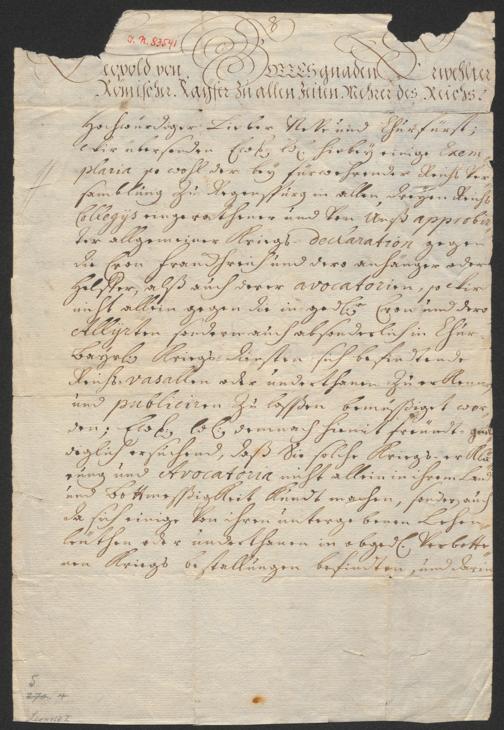 8
J. N. 83541
Leopold von GOTTES gnaden Erwehlter
Römischer Kayser zu allen Zeiten Mehrer des Reichs.
Hochwürdiger Lieber Neve und Churfürst;
Wir übersenden hierbey einige Exem-
plaria so wohl der bey fürwehrender Reichs Ver-
samblung zu Regenspurg in allen dreyen Reichs
Collegys eingerathener und von Unß approbir-
ter allgemeiner Kriegs-declaration gegen
die Cron Franckreich und dero anhänger oder
Helffer, alß auch derer avocatorien, so wir
nicht allein gegen die in Cron und dero
Allyrten sondern auch absonderlich in Chur-
Bayrl. Kriegs-Diensten sich befindende
Reichs-vasallen oder underthanen zu erkennen
und publiciren zu lassen bemüssiget wor-
den; demnach hiemit freündt-gnä-
diglich ersuchend, daß Sie solche Kriegs-erklä-
rung und Avocatoria nicht allein in ihrem Land
und Bottmessigkeit kundt machen, sondern auch
da sich einige von ihren untergebenen Lehen-
leüthen oder underthanen in verbotte-
nen Kriegs bestallungen befindten, und darin
5
270. 4
Leopold I